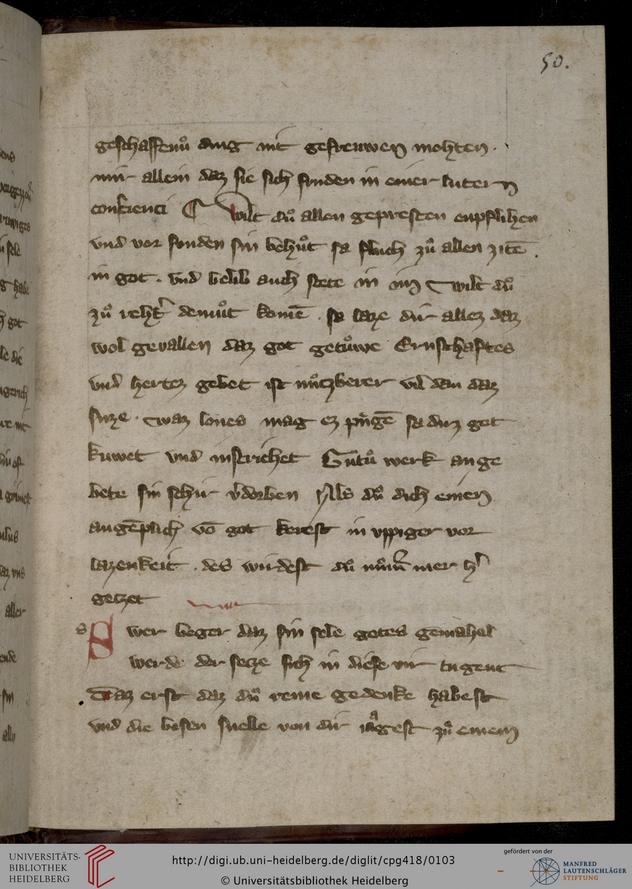 50.
geschaffenů ding nit gefreuwen mohten.
nur allein daz sie sich funden in einer lutern
conscienci Wilt dů allen gepresten enpflihen
und vor sunden sin behůt so fluch zů allen zite.
in got. und belib auch stete in im wilt dů
zů reht demůt kome. so laze dir allez daz
wol gevallen daz got getůwe Ernsthaftes
und hertez gebet ist nůtzberer vil dan daz
suze. waz lones mag ez so daz got
kuwet und Gůtů werk an ge
bete sin schir Als dů dich einen
augeplich vo got kerest in uppiger vor
lazenkeit. des wirdest dů mer
getzet
Swer beger daz sin sele gotes gemahel
werde der setze sich in diese vir tugent
Daz erst daz dů reine gedenke habest
und die bosen snelle von dir iagest zů einem
UNIVERSITÄTS-
BIBLIOTHEK
HEIDELBERG
http://digi.ub.uni-heidelberg.de/diglit/cpg418/0103
© Universitätsbibliothek Heidelberg
gefördert von der
MANFRED
LAUTENSCHLÄGER
STIFTUNG